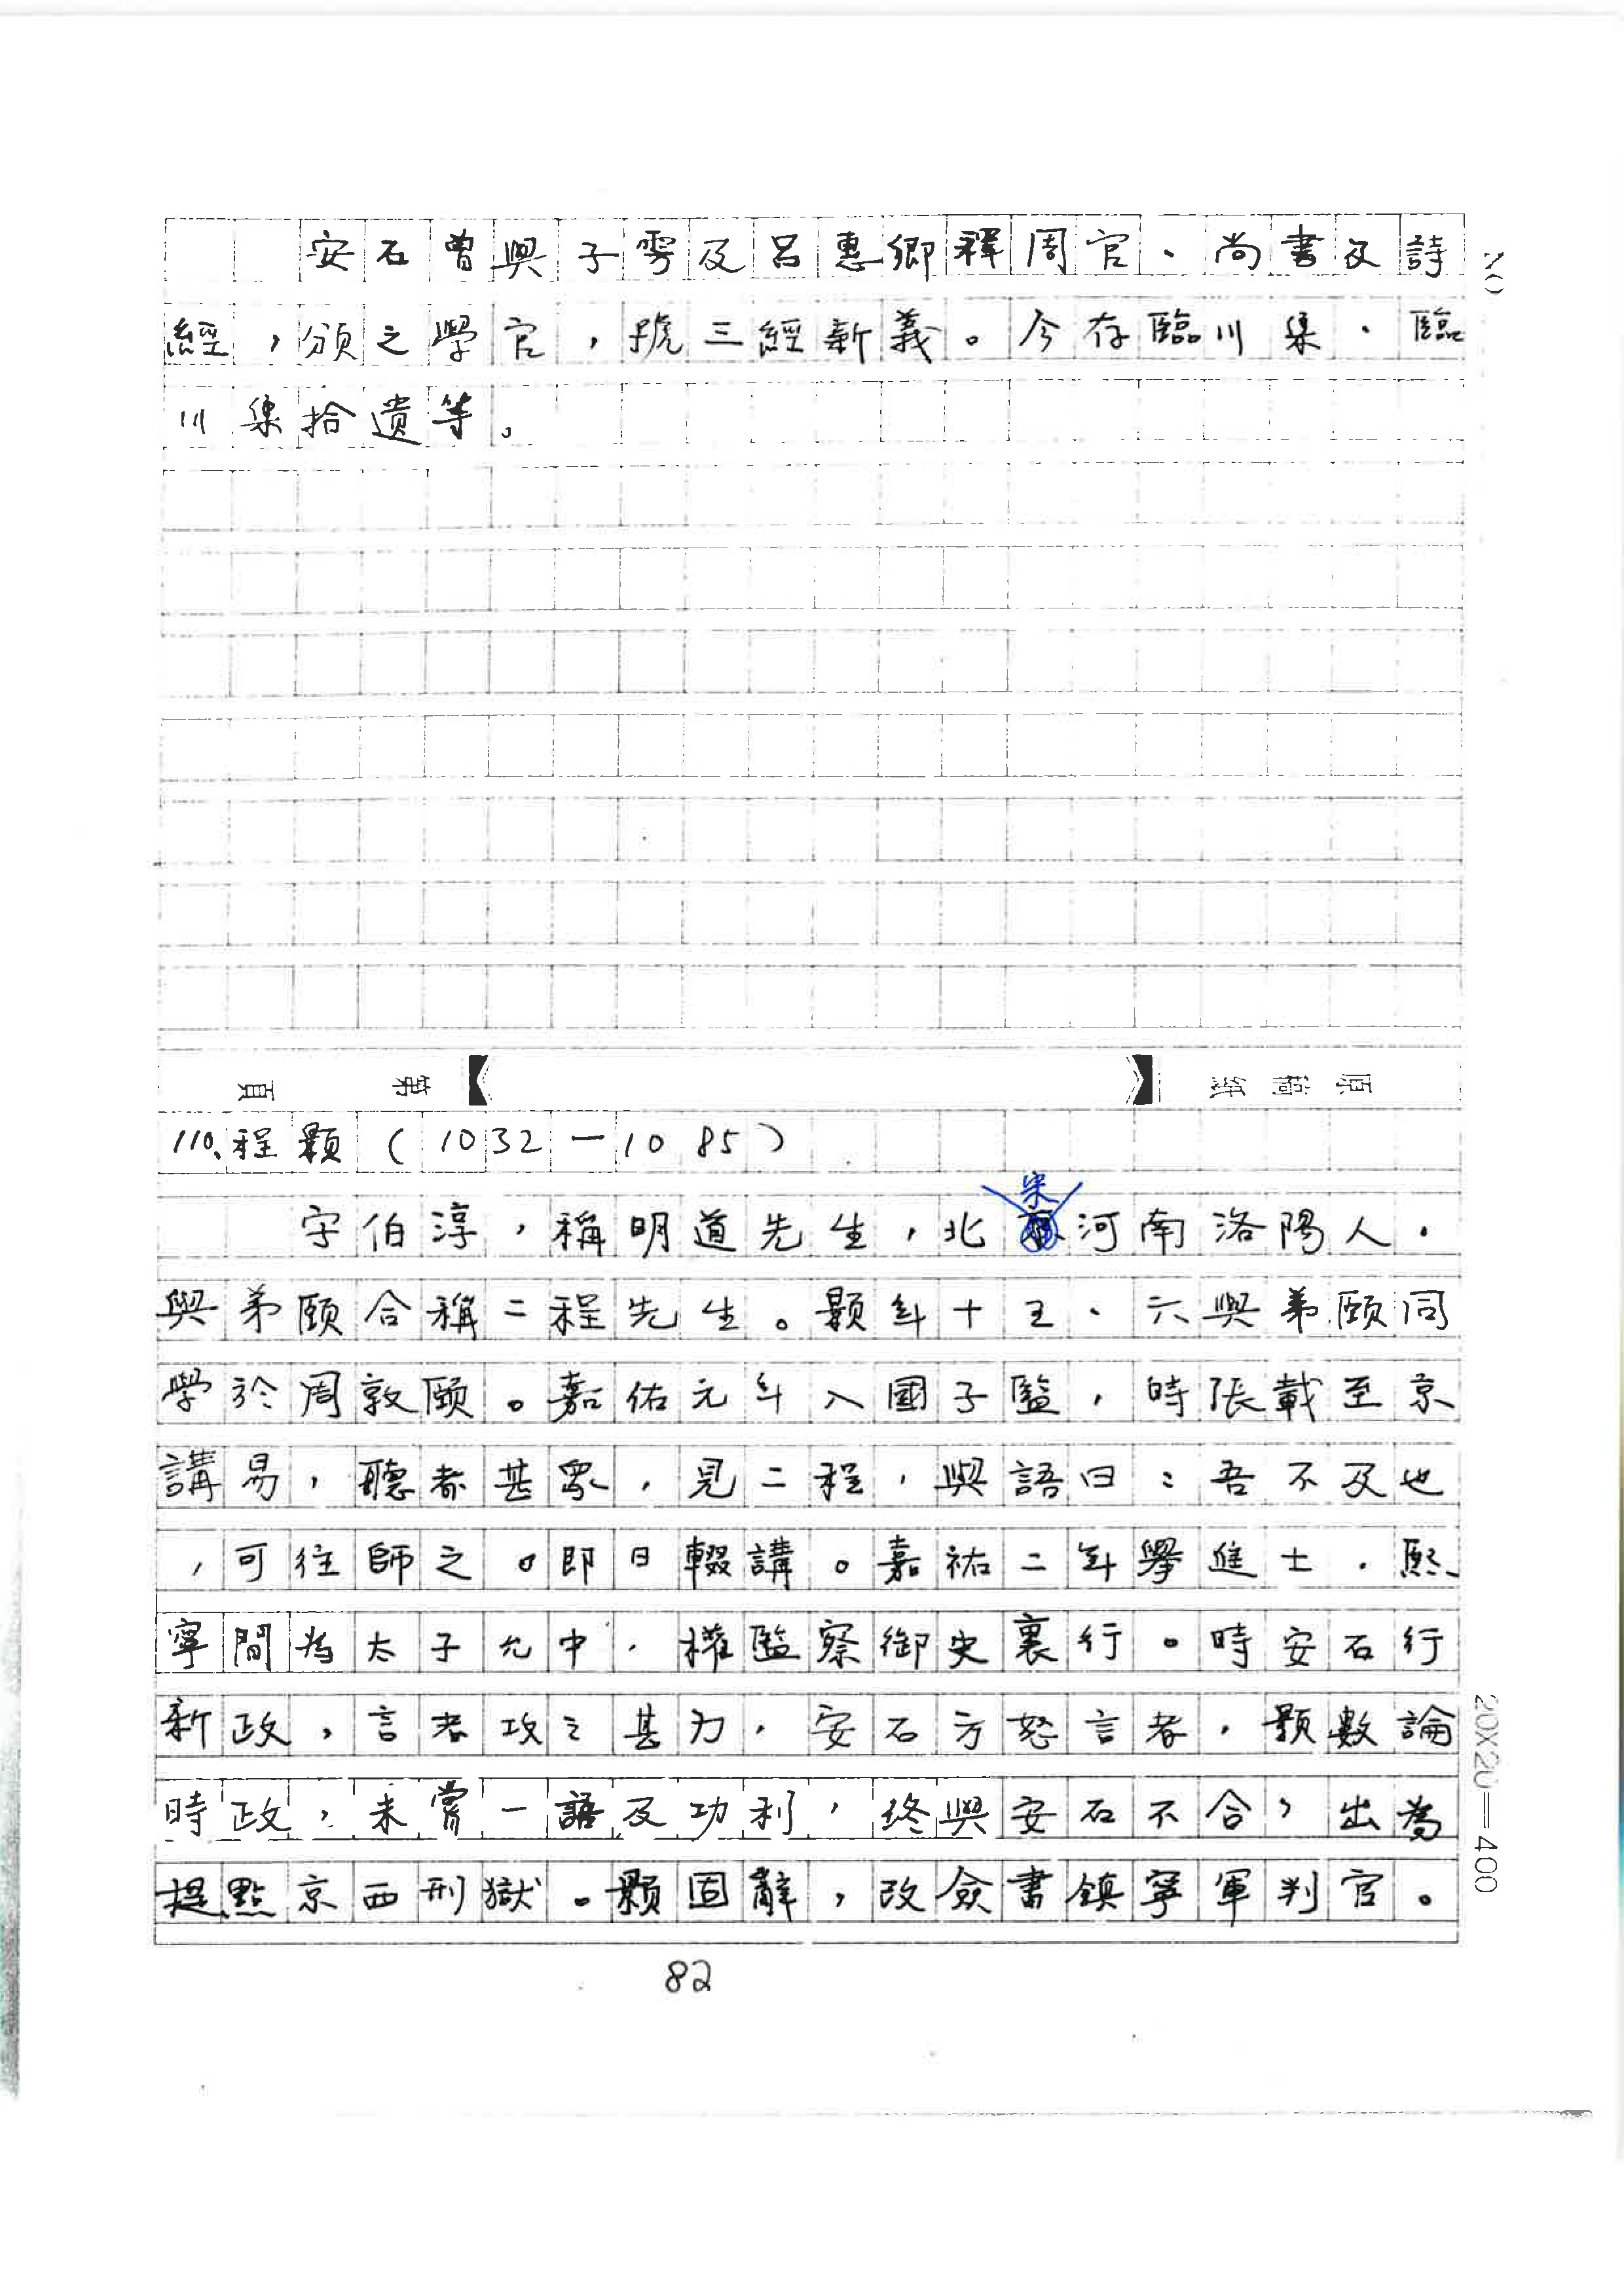 安石曾與子雱及呂惠卿釋周官、尚書及詩
經，頒之學官，號三經新義。今存臨川集、臨
川集拾遺等。
頁 第 原稿紙
110.程顥(1032—1085)
字伯淳，稱明道先生，北宋河南洛陽人，
與弟頤合稱二程先生。顥年十五、六與弟頤同
學於周敦頤。嘉佑元年入國子監，時張載至京
講易，聽者甚眾，見二程，與語曰：吾不及也
，可往師之。即日輟講。嘉祐二年舉進士，熙
寧間為太子允中，權監察御史裏行。時安石行
新政，言者攻之甚力，安石方怒言者，顥數論
時政，未嘗一語及功利，終與安石不合，出為
提點京西刑獄。顥固辭，改僉書鎮寧軍判官。
20X20=400
82